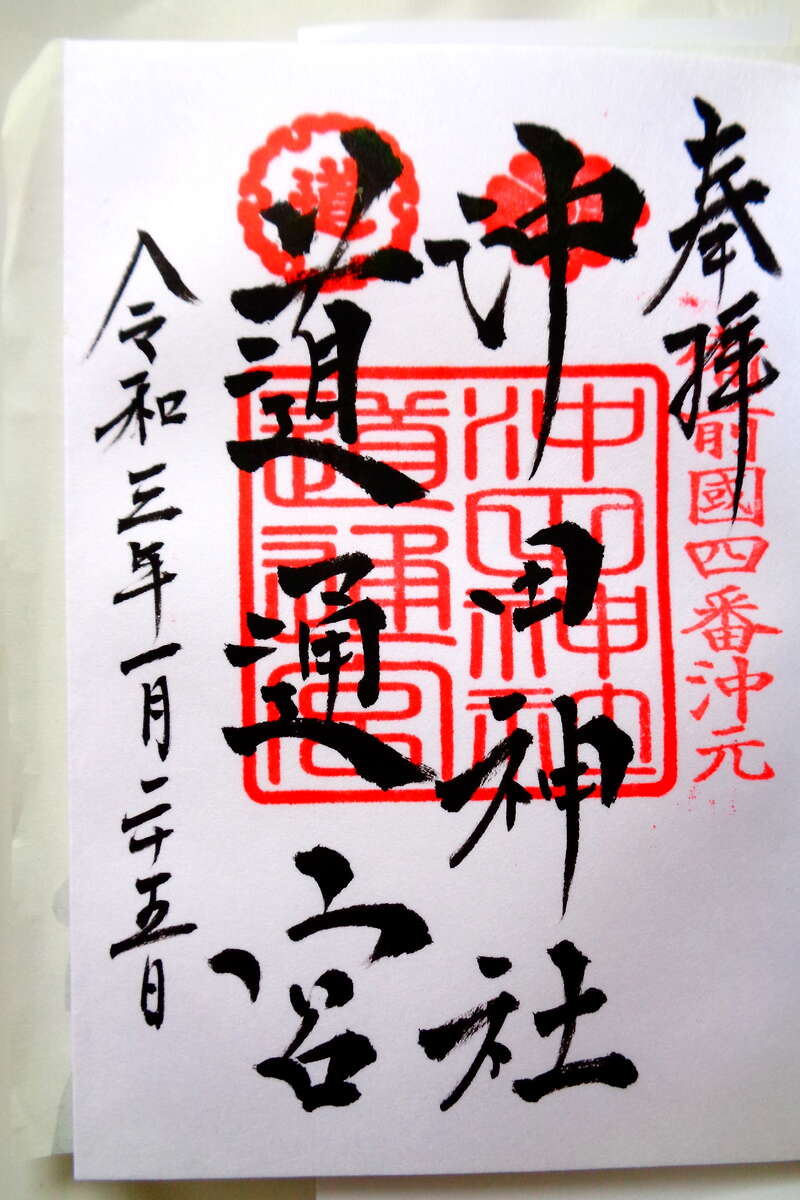 奉拝
備前國四番沖元
沖田神社
道通宮
沖田神社
道通宮
道
令和三年一月二十五日